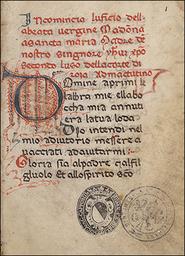 In comincio luficio dell
abeata vergine Madōna
Sancta maria Madre del
nostro signore yhu xpo
secondo luso della corte di
roma Ad matutino
Domine aprirai
le labra mie et la bo
ccha mia annuti
era la tua loda
Dio intendi nel
mio adiutorio messere a
vacciati ad aiutarmi
Gloria sia al padre et al fil
gluolo et allo spirito sco